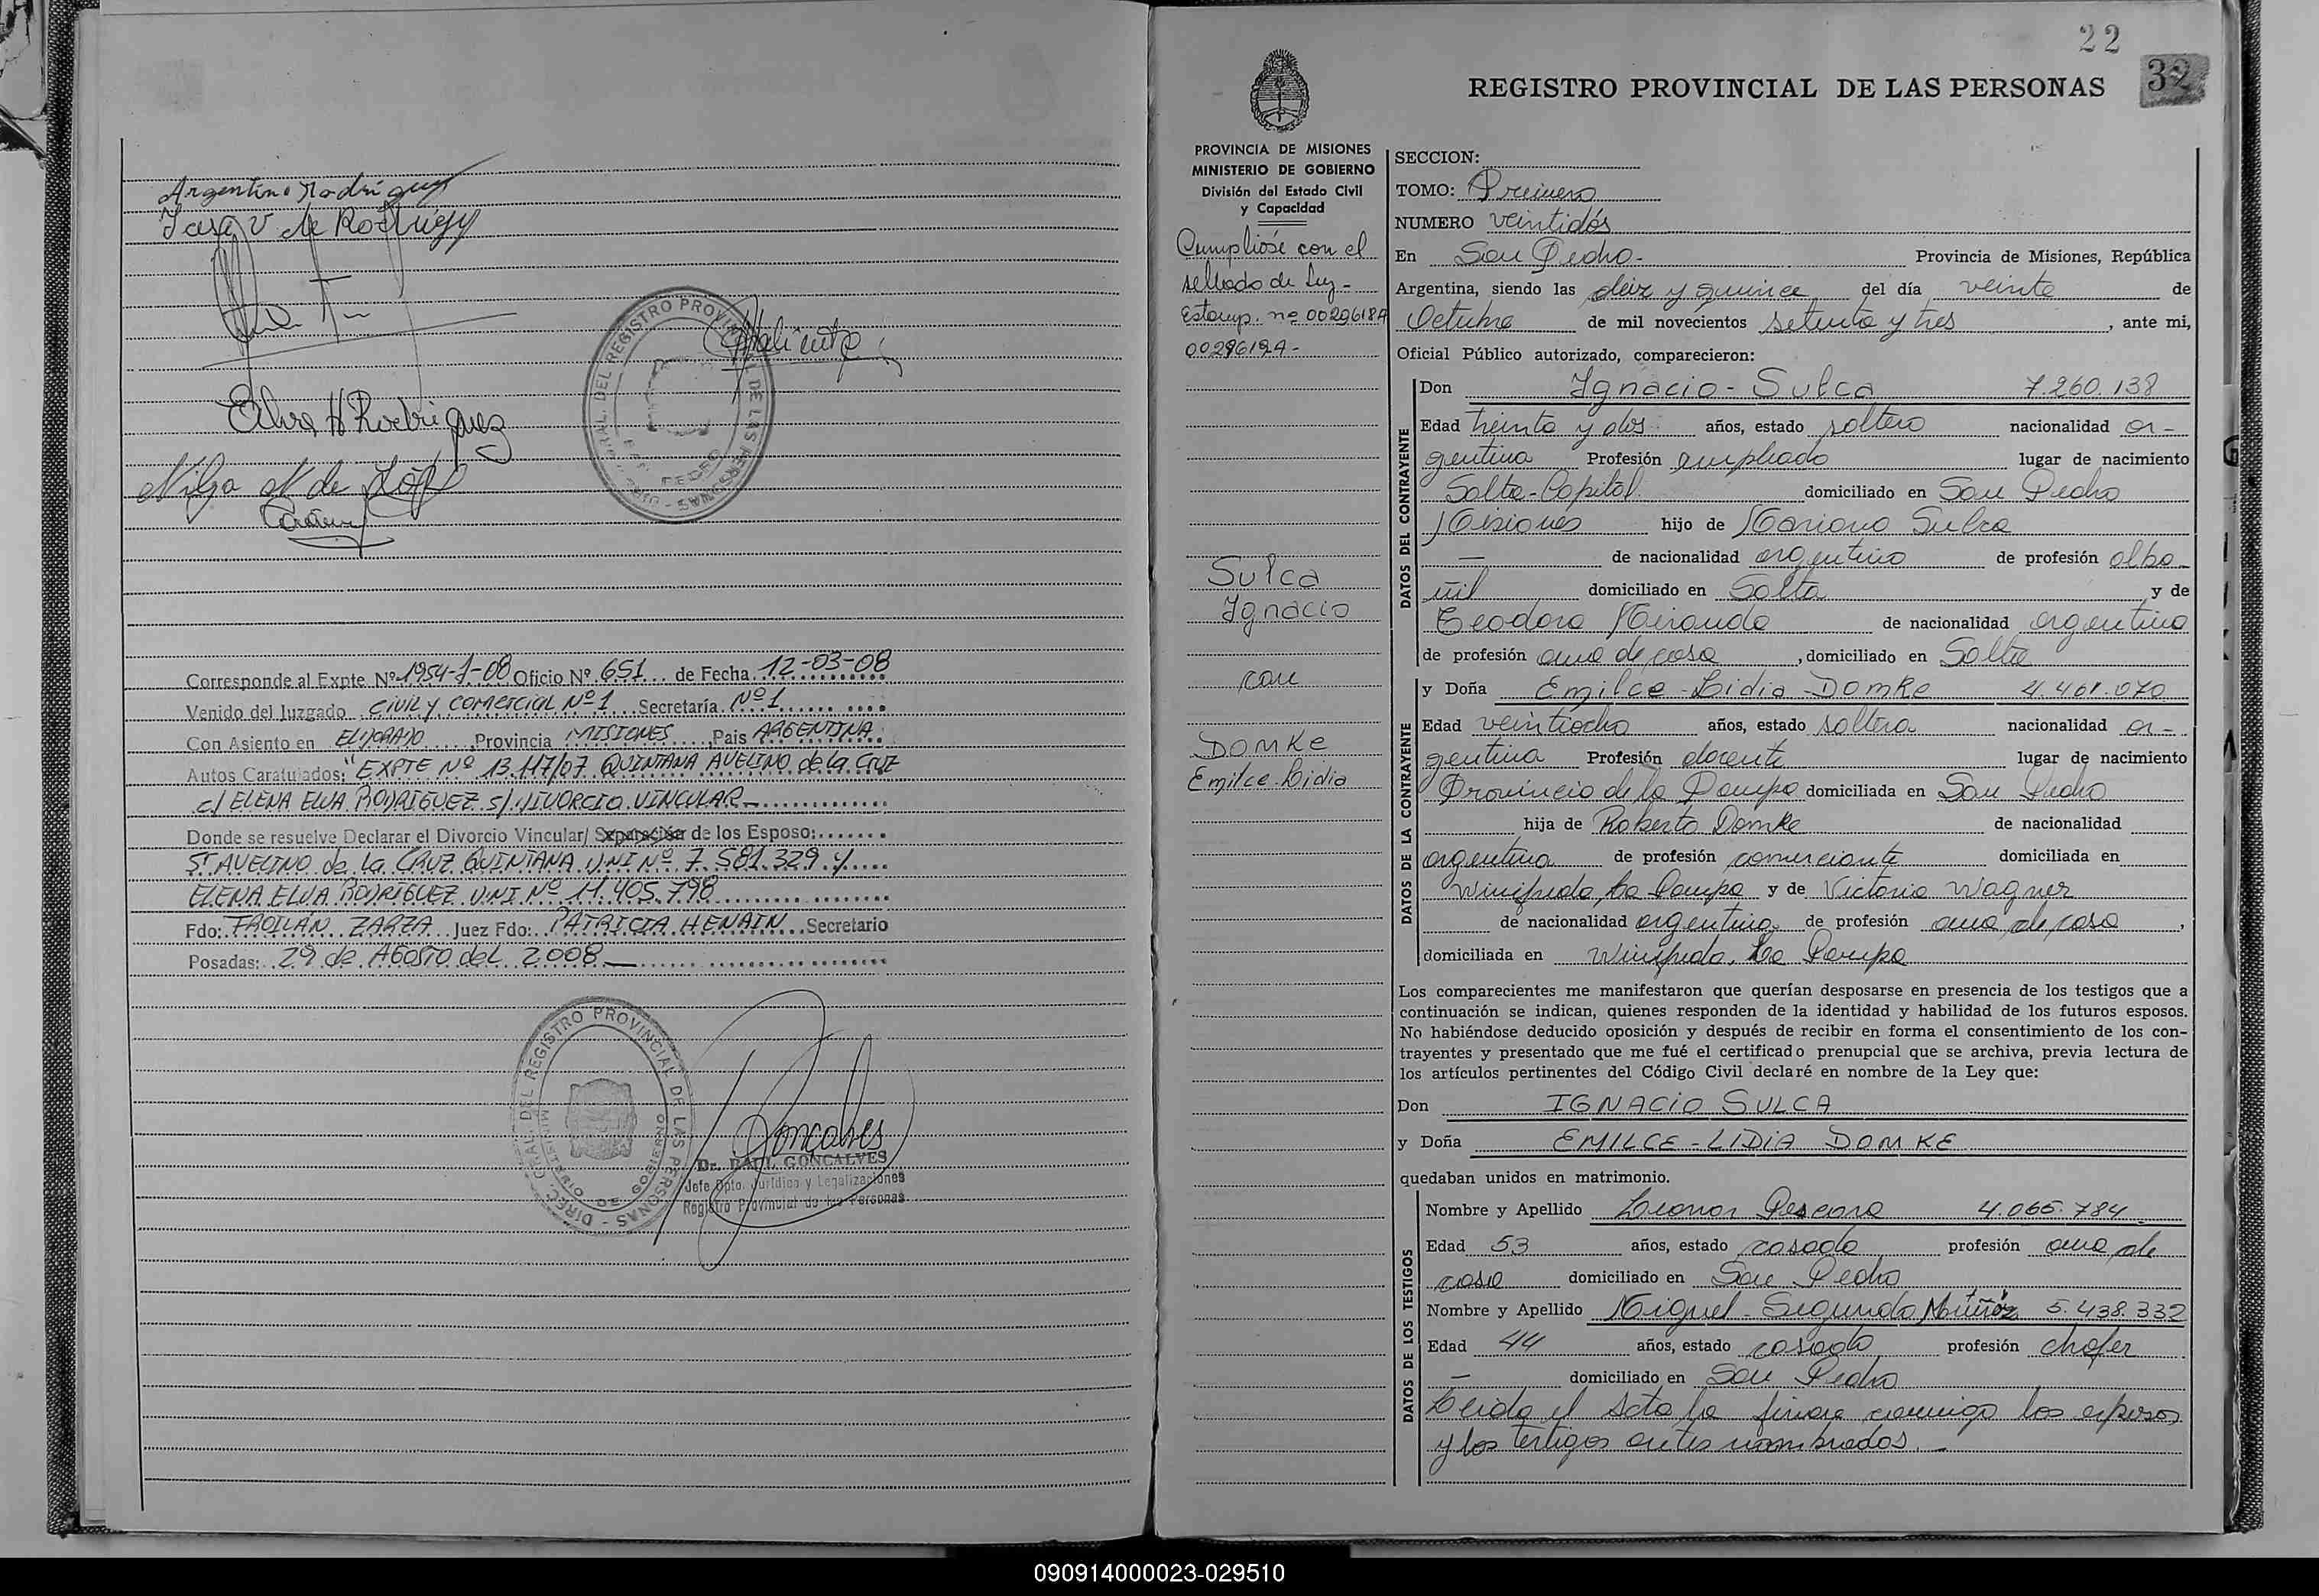 Argentino Rodriguez
de Rodriguez
Elva H Rodriguez
Nilga N de López
DIREC. GRAL. DEL REGISTRO PROVINCIAL DE LAS PERSONAS
Corresponde al Expte Nº 1954-1-08 Oficio Nº 651 de Fecha 12-03-08
Venido del Juzgado CIVIL y COMERCIAL Nº 1 Secretaría Nº 1
Con Asiento en ELDORADO Provincia MISIONES Pais ARGENTINA
Autos Caratulados: "EXPTE Nº 13.117/07 QUINTANA AVELINO de la CRUZ
c/ ELENA ELVA RODRIGUEZ s/ DIVORCIO VINCULAR
Donde se resuelve Declarar el Divorcio Vincular/ Separación de los Esposo:
Sr AVELINO de la CRUZ QUINTANA DNI Nº 7.581.329 y
ELENA ELVA RODRIGUEZ DNI Nº 11.405.798
Fdo: FROILÁN ZARZA Juez Fdo: PATRICIA HENAIN Secretario
Posadas: 29 de AGOSTO del 2.008
DIREC. GRAL. DEL REGISTRO PROVINCIAL DE LAS PERSONAS
Dr. RAUL GONCALVES
Jefe Dpto. Jurídico y Legalizaciones
Registro Provincial de las Personas
22
32
REGISTRO PROVINCIAL DE LAS PERSONAS
PROVINCIA DE MISIONES
MINISTERIO DE GOBIERNO
División del Estado Civil
y Capacidad
Cumplióse con el
sellado de Ley-
Estamp. nº
Sulca
Ignacio
con
Domke
Emilce-Lidia
SECCION:
TOMO: Primero
NUMERO veintidós
En San Pedro- Provincia de Misiones, República
Argentina, siendo las diez y quince del día veinte de
Octubre de mil novecientos setenta y tres, ante mi,
Oficial Público autorizado, comparecieron:
DATOS DEL CONTRAYENTE
Don Ignacio-Sulca 7.260.138
Edad treinta y dos años, estado soltero nacionalidad ar-
gentina Profesión empleado lugar de nacimiento
Salta-Capital domiciliado en San Pedro
Misiones hijo de Mariano Sulca
— de nacionalidad argentino de profesión alba-
ñil domiciliado en Salta y de
Teodora Miranda de nacionalidad argentina
de profesión ama de casa, domiciliado en Salta
DATOS DE LA CONTRAYENTE
y Doña Emilce-Lidia-Domke 4.461.070
Edad veintiocho años, estado soltera nacionalidad ar-
gentina Profesión docente lugar de nacimiento
Provincia de la Pampa domiciliada en San Pedro
hija de Roberto Domke de nacionalidad
argentina de profesión comerciante domiciliada en
Winifreda, La Pampa y de Victoria Wagner
de nacionalidad argentina de profesión ama de casa,
domiciliada en Winifreda, La Pampa
Los comparecientes me manifestaron que querían desposarse en presencia de los testigos que a
continuación se indican, quienes responden de la identidad y habilidad de los futuros esposos.
No habiéndose deducido oposición y después de recibir en forma el consentimiento de los con-
trayentes y presentado que me fué el certificado prenupcial que se archiva, previa lectura de
los artículos pertinentes del Código Civil declaré en nombre de la Ley que:
Don IGNACIO SULCA
y Doña EMILCE-LIDIA DOMKE
quedaban unidos en matrimonio.
DATOS DE LOS TESTIGOS
Nombre y Apellido Leonor Pescara 4.065.784
Edad 53 años, estado casada profesión ama de
casa domiciliado en San Pedro
Nombre y Apellido Miguel-Segundo Múñoz 5.438.332
Edad 44 años, estado casado profesión chofer
— domiciliado en San Pedro
Leida el Acta la firman conmigo los esposos
y los testigos antes nombrados.—
090914000023-029510